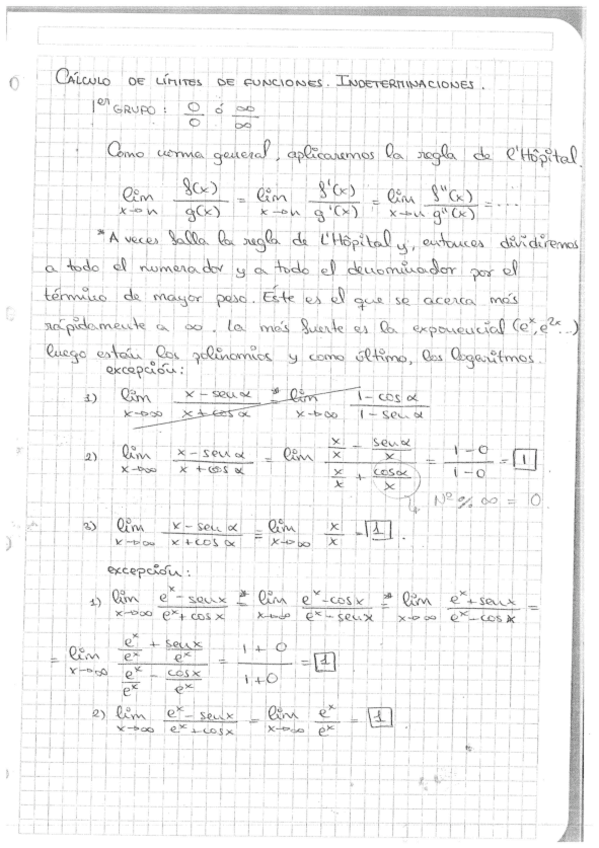 CÁLCULO DE LÍMITES DE FUNCIONES. INDETERMINACIONES.
1er GRUPO: 0/0 ó ∞/∞
Como norma general, aplicaremos la regla de l'Hôpital.
lim x→n f(x)/g(x) = lim x→n f'(x)/g'(x) = lim x→n f''(x)/g''(x) = ...
* A veces falla la regla de l'Hôpital y, entonces dividiremos
a todo el numerador y a todo el denominador por el
término de mayor peso. Éste es el que se acerca más
rápidamente a ∞. La más fuerte es la exponencial (e^x, e^2x...)
luego están los polinomios y como último, los logaritmos.
excepción:
1) lim x→∞ (x - sen α)/(x + cos α) =* lim x→∞ (1 - cos α)/(1 - sen α)
2) lim x→∞ (x - sen α)/(x + cos α) = lim (x/x - sen α/x)/(x/x + cos α/x) = (1-0)/(1-0) = 1
Nº % ∞ = 0
3) lim x→∞ (x - sen α)/(x + cos α) = lim x→∞ x/x = 1.
excepción:
1) lim x→∞ (e^x - sen x)/(e^x + cos x) =* lim x→∞ (e^x - cos x)/(e^x - sen x) =* lim x→∞ (e^x + sen x)/(e^x - cos x) =
= lim x→∞ (e^x/e^x + sen x/e^x)/(e^x/e^x - cos x/e^x) = (1+0)/(1+0) = 1
2) lim x→∞ (e^x - sen x)/(e^x + cos x) = lim x→∞ e^x/e^x = 1